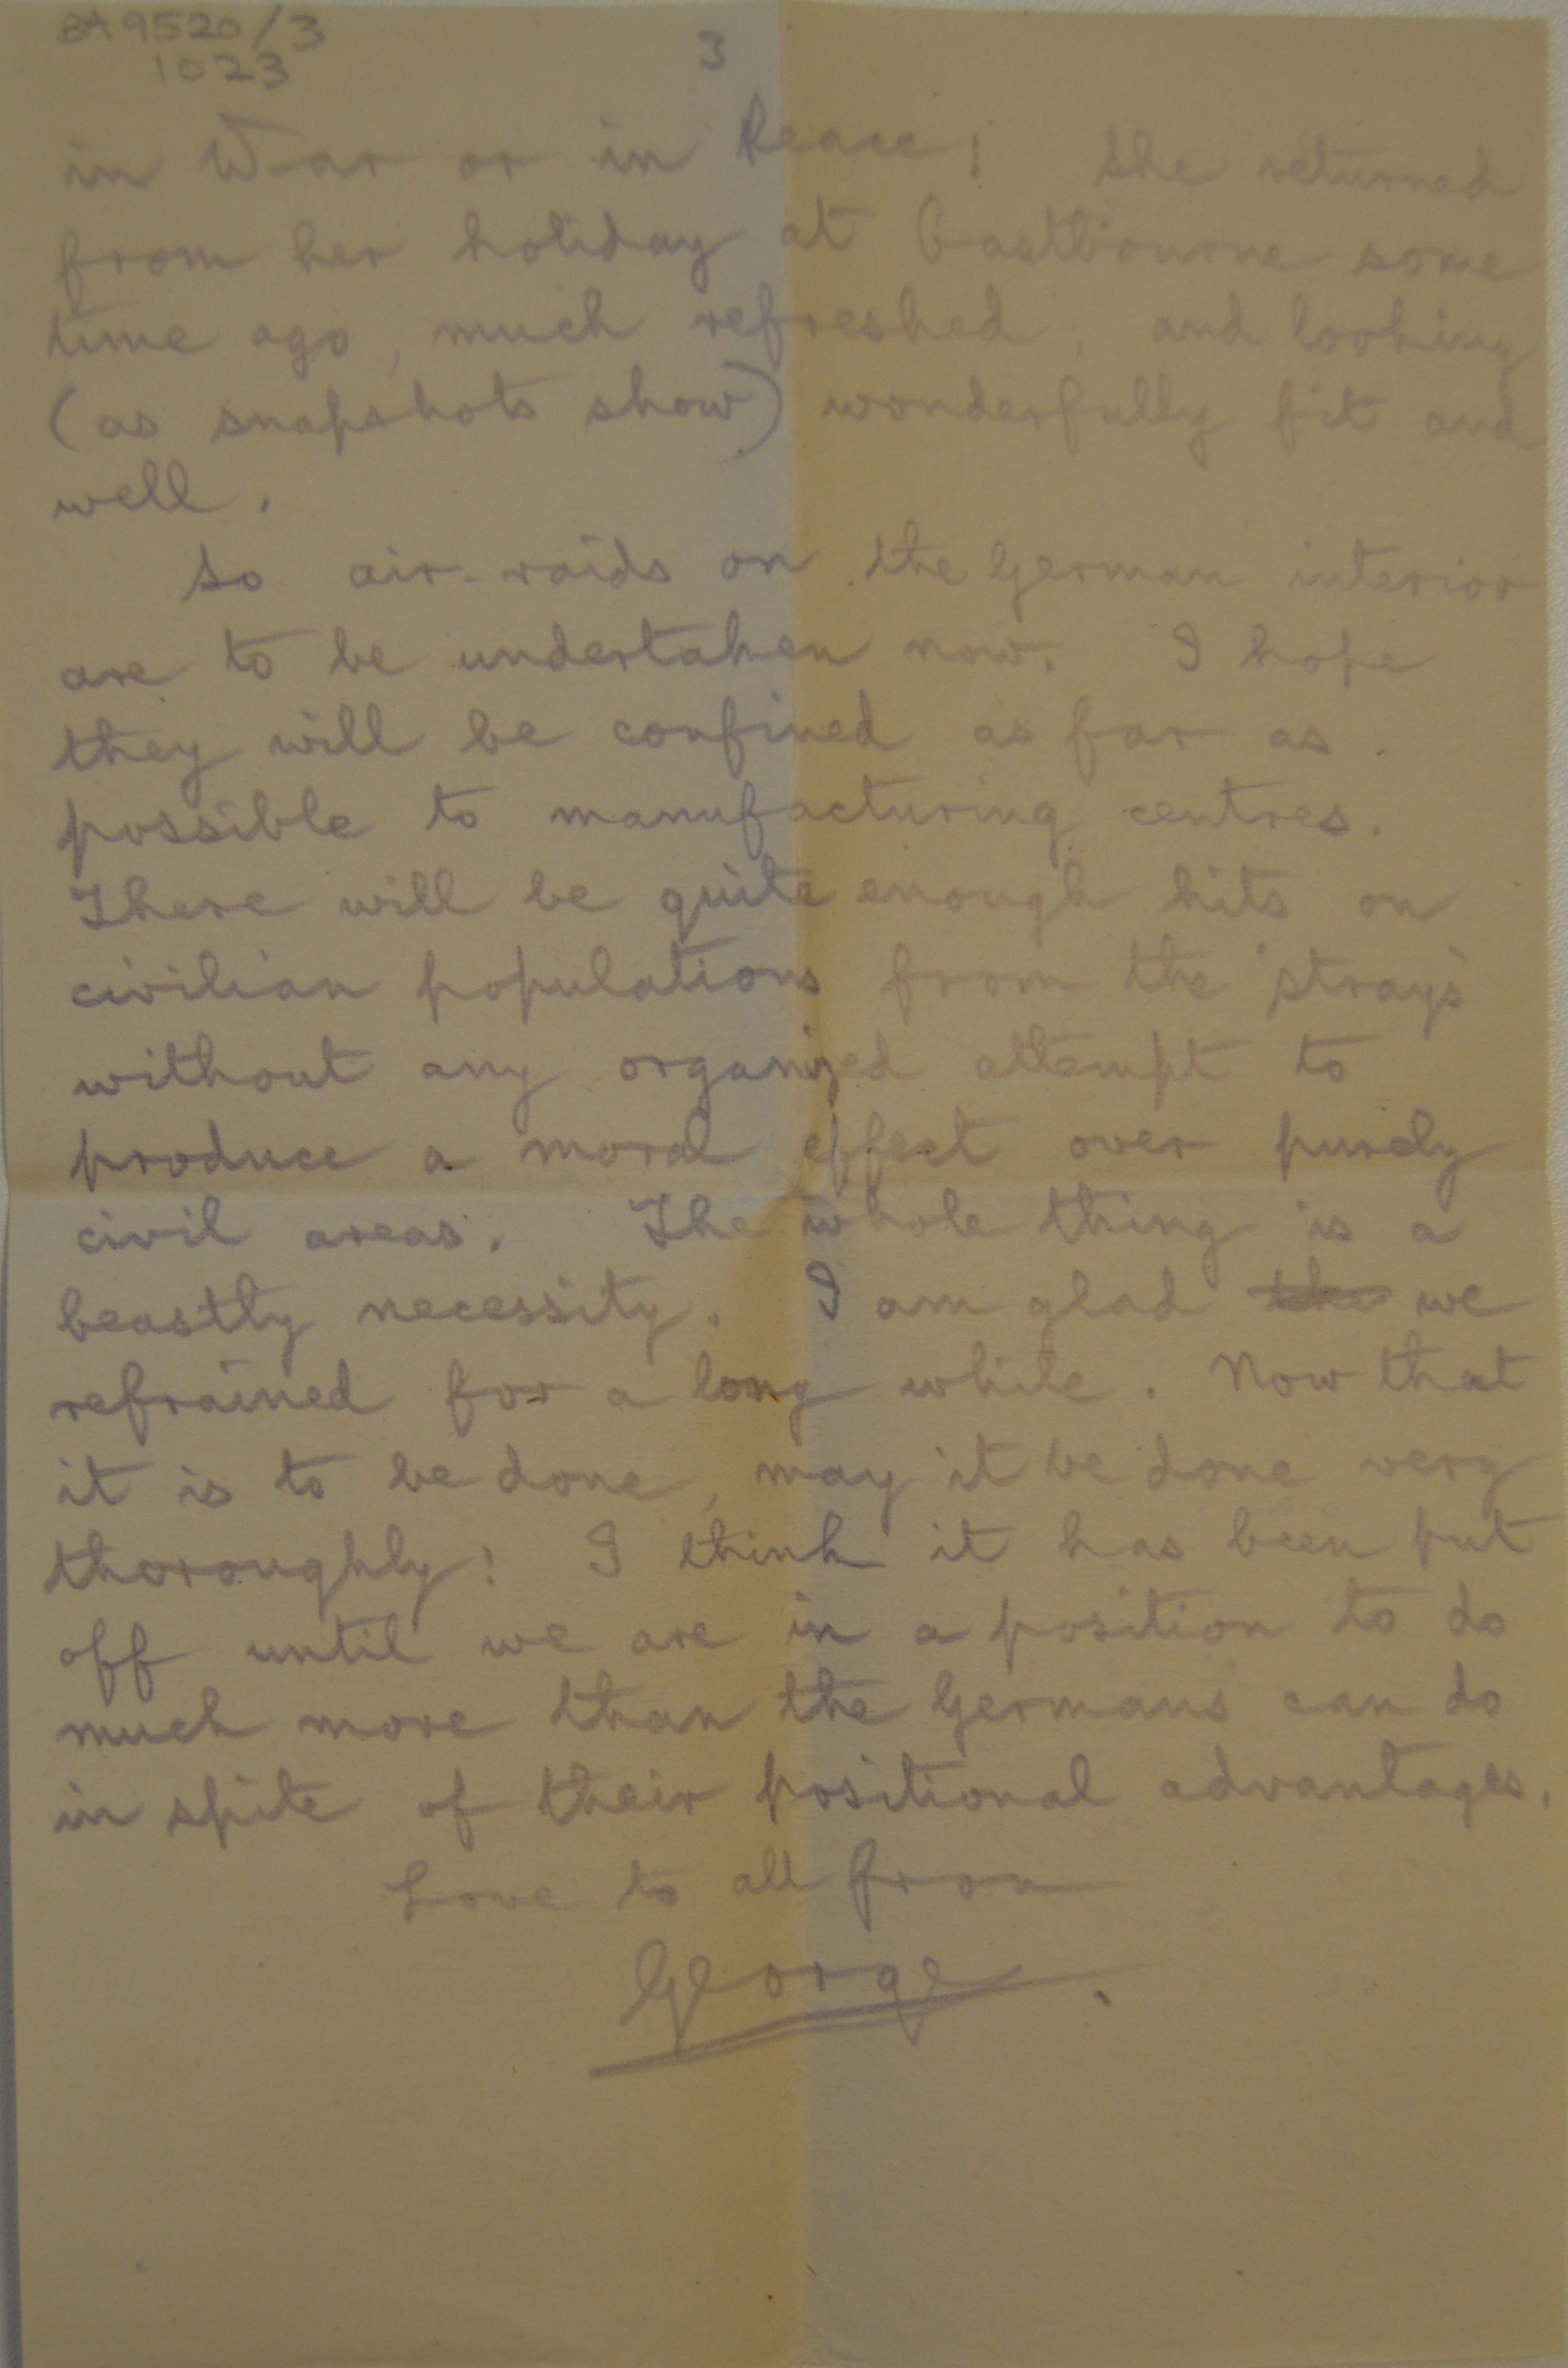 BA9520/3
1023
3
in War or in Peace! She returned
from her holiday at Eastbourne some
time ago, much refreshed; and looking
(as snapshots show) wonderfully fit and
well.
So air-raids on the German interior
are to be undertaken now. I hope
they will be confined as far as
possible to manufacturing centres.
There will be quite enough hits on
civilian populations from the 'strays'
without any organized attempt to
produce a moral effect over purely
civil areas. The whole thing is a
beastly necessity. I am glad the we
refrained for a long while. Now that
it is to be done, may it be done very
thoroughly! I think it has been put
off until we are in a position to do
much more than the Germans can do
in spite of their positional advantages.
Love to all from
George.